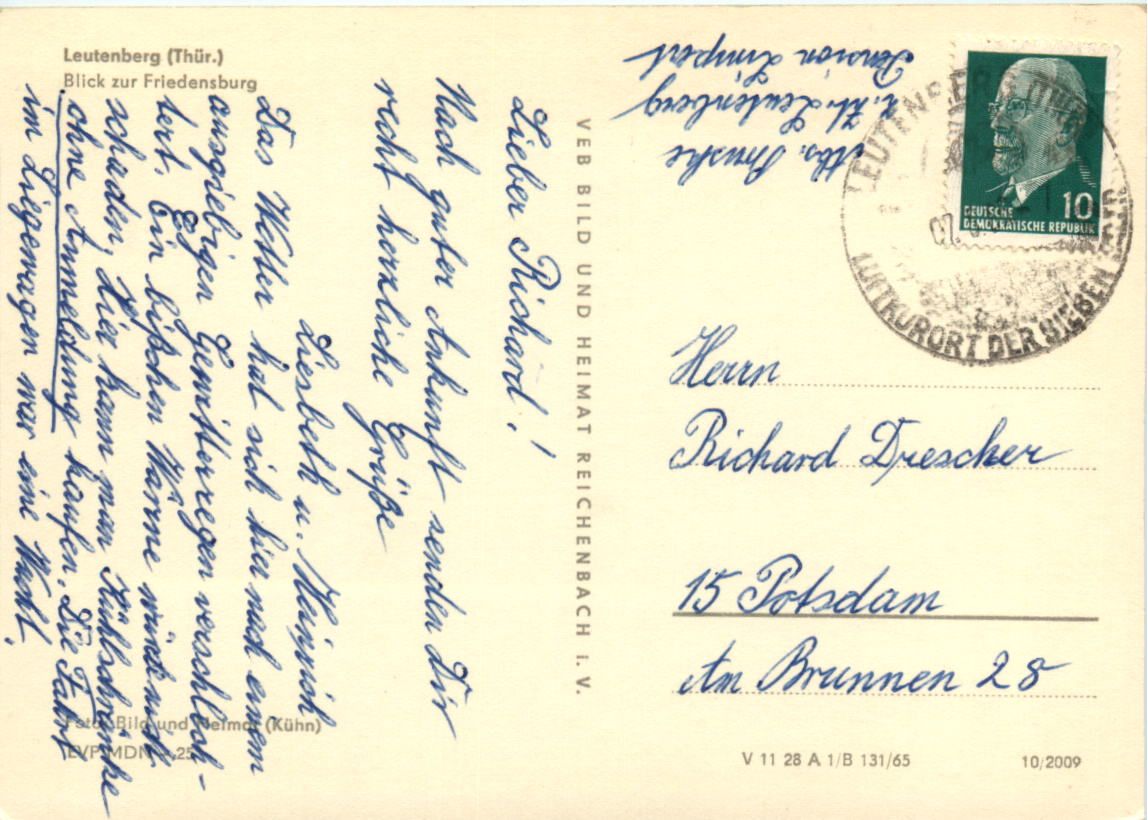 Leutenberg (Thür.)
Blick zur Friedensburg
Lieber Richard!
Nach guter Ankunft senden Dir
recht herzliche Grüße
Liesbeth u. Heinrich
Das Wetter hat sich hier nach einem
ausgiebigen Gewitterregen verschlech-
tert. Ein bißchen Wärme würde nicht
schaden, hier kann man Kühlschränke
ohne Anmeldung kaufen. Die Fahrt
im Liegewagen war eine Wucht!
Foto: Bild und Heimat (Kühn)
EVP MDN 0,25
VEB BILD UND HEIMAT REICHENBACH I. V.
Abs.
z. Zt. Leutenberg
Pension Limpert
LEUTENBERG (THÜR)
07.
LUFTKURORT DER SIEBEN TÄLER
10
DEUTSCHE
DEMOKRATISCHE REPUBLIK
Herrn
Richard Drescher
15 Potsdam
Am Brunnen 28
V 11 28 A 1/B 131/65
10/2009